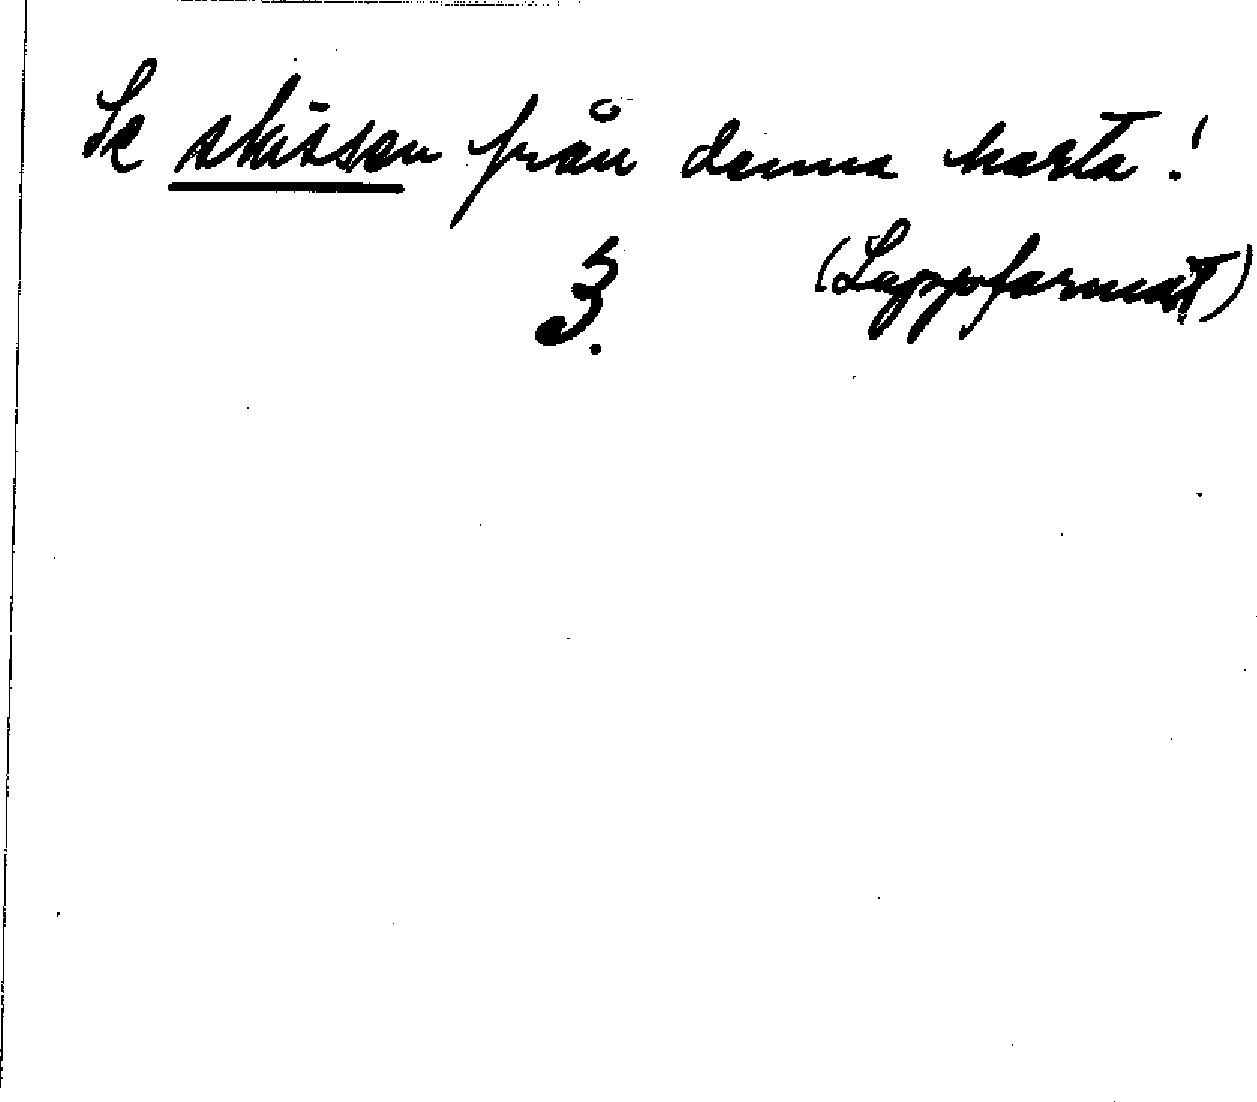 Se skissen från denna karta!
(Lappformat)
3.